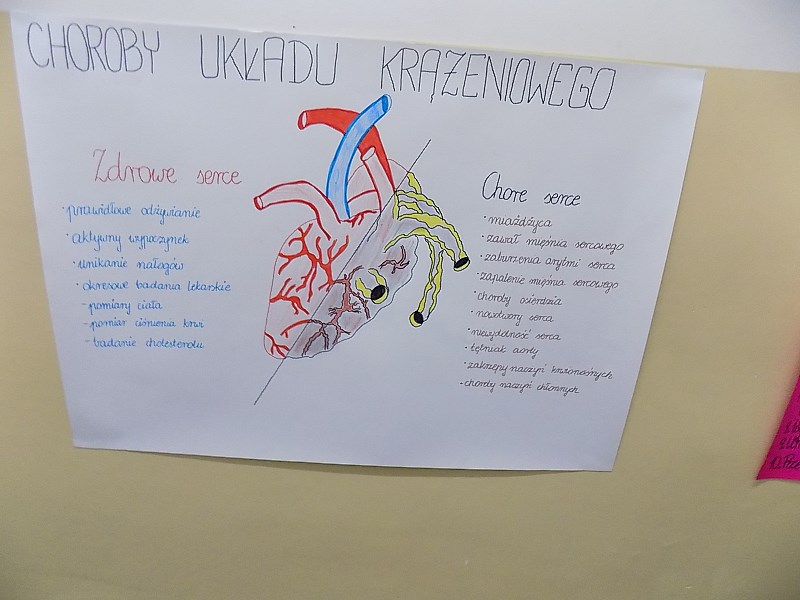 CHOROBY UKŁADU KRĄŻENIOWEGO
Zdrowe serce
· prawidłowe odżywianie
· aktywny wypoczynek
· unikanie nałogów
· okresowe badania lekarskie
- pomiary ciała
- pomiar ciśnienia krwi
- badanie cholesterolu
Chore serce
· miażdżyca
· zawał mięśnia sercowego
· zaburzenia arytmi serca
· zapalenie mięśnia sercowego
· choroby osierdzia
· nowotwory serca
· niewydolność serca
· tętniak aorty
· zakrzepy naczyń krwionośnych
- choroby naczyń chłonnych
10.